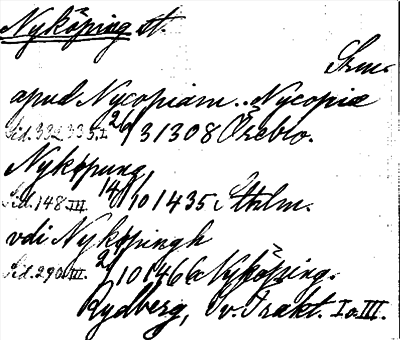 Nyköping st.
Srm.
apud Nycopiam.. Nycopiæ
Sid. 332, 335. I. 26/3 1308 Örebro.
Nyköpung,
Sid. 148. III. 14/10 1435 Sthlm.
vdi Nyköpingh
Sid. 290. III. 2/10 1466 Nyköping.
Rydberg, Sv. Trakt. I o. III.